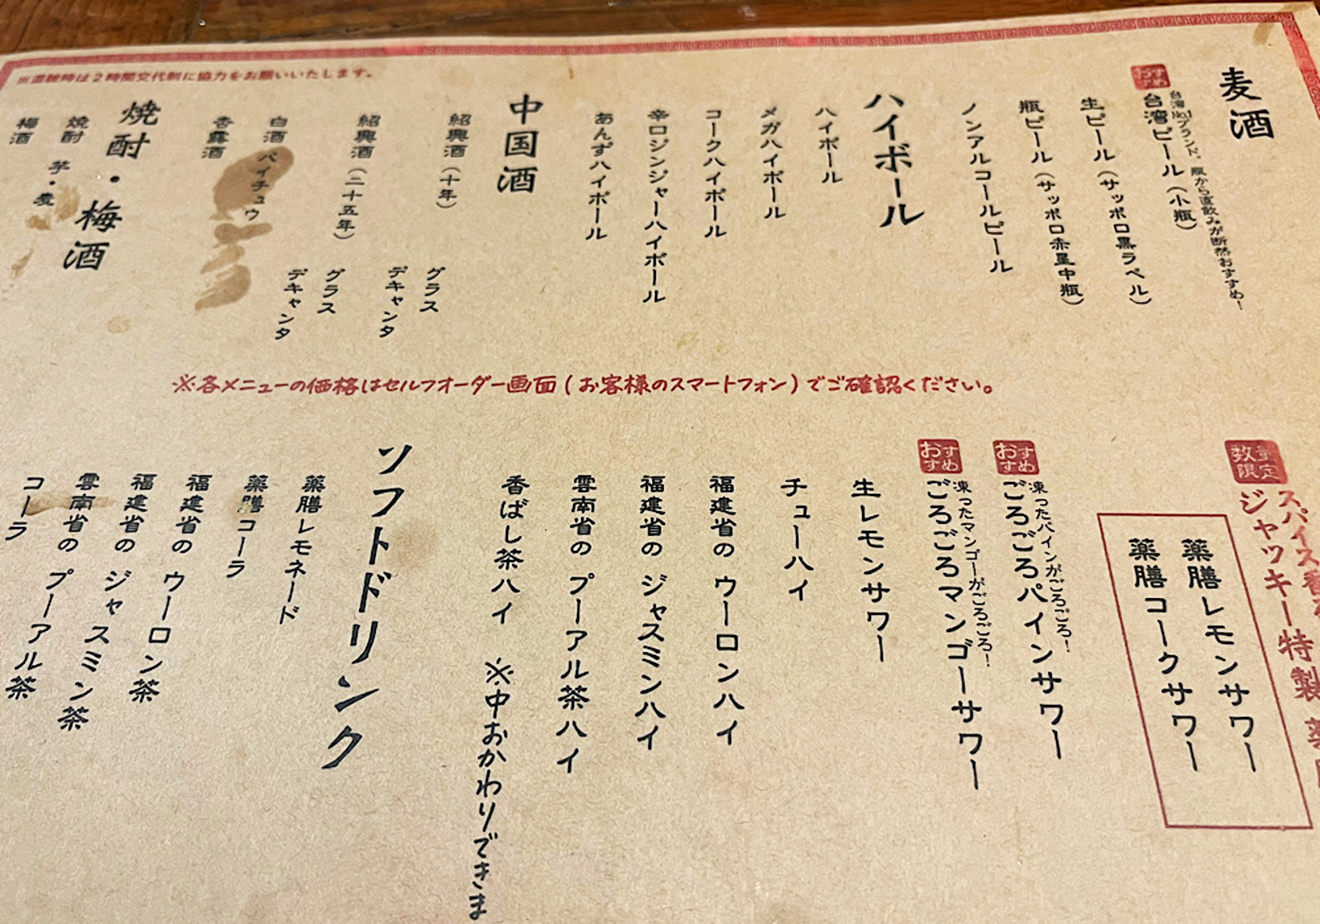 ※混雑時は２時間交代制に協力をお願いいたします。
麦酒
おすすめ
台湾No.1ブランド、瓶から直飲みが断然おすすめ！
台湾ビール（小瓶）
生ビール（サッポロ黒ラベル）
瓶ビール（サッポロ赤星中瓶）
ノンアルコールビール
ハイボール
ハイボール
メガハイボール
コークハイボール
辛口ジンジャーハイボール
あんずハイボール
中国酒
紹興酒（十年）
グラス
デキャンタ
紹興酒（二十五年）
グラス
デキャンタ
白酒 パイチュウ
杏露酒
焼酎・梅酒
焼酎 芋・麦
梅酒
※各メニューの価格はセルフオーダー画面（お客様のスマートフォン）でご確認ください。
数量限定
スパイス香る
ジャッキー特製 薬
薬膳レモンサワー
薬膳コークサワー
おすすめ
凍ったパインがごろごろ！
ごろごろパインサワー
おすすめ
凍ったマンゴーがごろごろ！
ごろごろマンゴーサワー
生レモンサワー
チューハイ
福建省の ウーロンハイ
福建省の ジャスミンハイ
雲南省の プーアル茶ハイ
香ばし茶ハイ ※中おかわりできま
ソフトドリンク
薬膳レモネード
薬膳コーラ
福建省の ウーロン茶
福建省の ジャスミン茶
雲南省の プーアル茶
コーラ